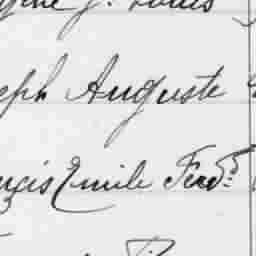 J. Louis
eph Auguste
ncis Emile Ferd.